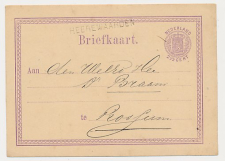 HEEREWAARDEN
NEDERLAND
Briefkaart.
Aan den WelEd Heer
Braam
te Rossum